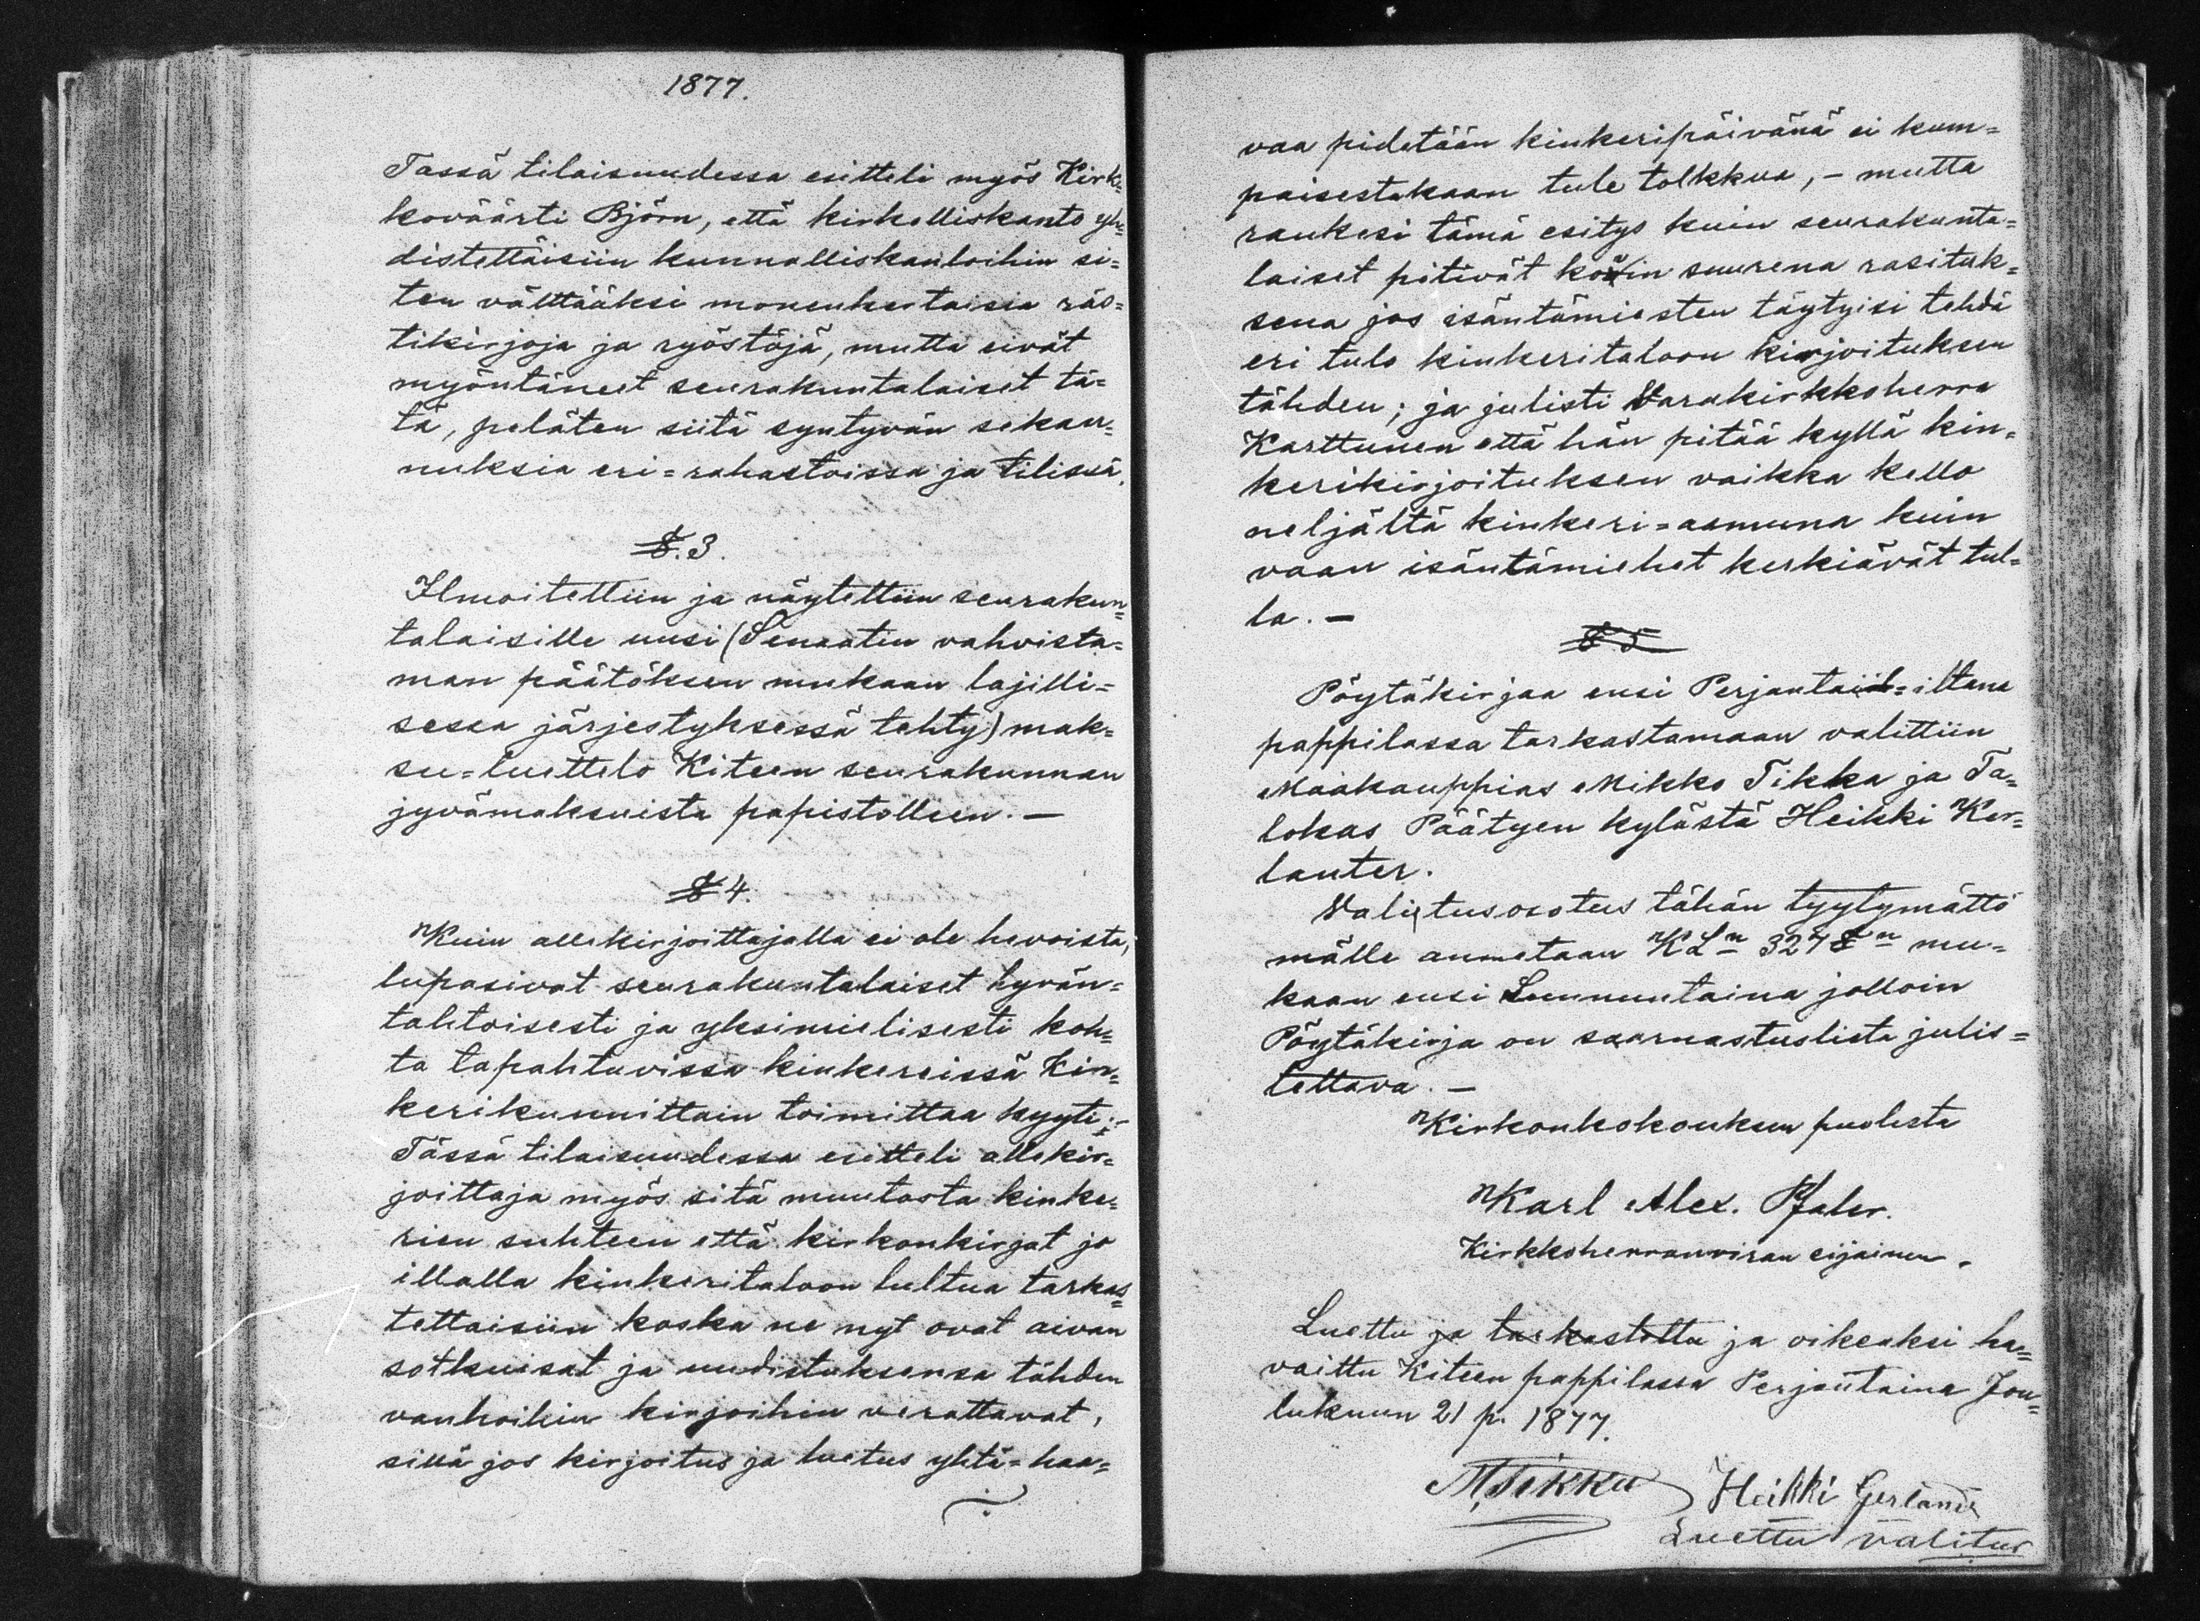 1877.
Tässä tilaisuudessa esitteli myös Kirk=
koväärti Björn, että kirkolliskanto yh=
distettäisiin kunnalliskantoihin si=
ten välttääksi monenkertaisia räs=
tikirjoja ja ryöstöjä, mutta eivät
myöntäneet seurakuntalaiset tä=
tä, peläten siitä syntyvän sekan=
nuksia eri=rahastoissa ja tilissä.
§.3.
Ilmoitettiin ja näytettiin seurakun=
talaisille uusi (Senaatin vahvista=
man päätöksen mukaan lajilli=
sessa järjestyksessä tehty) mak=
su=luettelo Kiteen seurakunnan
jyvämaksuista papistolleen. —
§ 4.
Kuin allekirjoittajalla ei ole hevoista,
lupasivat seurakuntalaiset hyvän=
tahtoisesti ja yksimielisesti koh=
ta tapahtuvissa kinkereissä Kin=
kerikunnittain toimittaa kyyti;–
Tässä tilaisuudessa esitteli allekir=
joittaja myös sitä muutosta kinke=
rien suhteen että kirkonkirjat jo
illalla kinkeritaloon tultua tarkas=
tettaisiin koska ne nyt ovat aivan
sotkuisat ja uudistuksensa tähden
vanhoihin kirjoihin verattavat,
sillä jos kirjoitus ja luetus yhtä=haa=
vaa pidetään kinkeripäivänä ei kum=
paisestakaan tule tolkkua, – mutta
raukesi tämä esitys kuin seurakunta=
laiset pitivät kovin suurena rasituk=
sena jos isäntämiesten täytyisi tehdä
eri tulo kinkeritaloon kirjoituksen
tähden; ja julisti Varakirkkoherra
Karttunen että hän pitää kyllä kin=
kerikirjoituksen vaikka kello
neljältä kinkeri=aamuna kuin
vaan isäntämiehet kerkiävät tul=
la. —
§ 5
Pöytäkirjaa ensi Perjantai=iltana
pappilassa tarkastamaan valittiin
Maakauppias Mikko Tikka ja Ta=
lokas Päätyen kylästä Heikki Ker=
lanter.
Valitusosotus tähän tyytymättö
mälle annetaan KLn 327 §n mu=
kaan ensi Sunnuntaina jolloin
Pöytäkirja on saarnastuolista julis=
tettava. —
Kirkonkokouksen puolesta
Karl Alex. Pfaler.
Kirkkoherranviran sijainen.
Luettu ja tarkastettu ja oikeaksi ha=
vaittu Kiteen pappilassa Perjantaina Jou=
lukuun 21 p. 1877.
M Tikka Heikki Gerlander
Luettu valitus